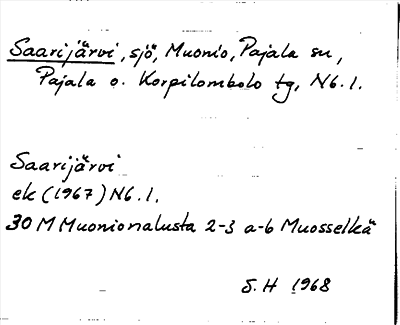 Saarijärvi, sjö, Muonio, Pajala sn,
Pajala o. Korpilombolo tg, Nb. l.
Saarijärvi
ek (1967) Nb. l.
30 M Muonionalusta 2-3 a-b Muosselkä
S. H 1968